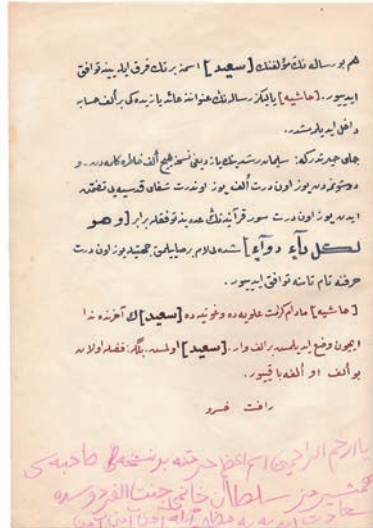 هم بو رساله نك مؤلفنك [سعيد] اسمنه برتك فرق ايله ينه توافق
ايدييور. [حاشيه] يالڭز رساله نك عنواننه عائد يازيده كى بر ألف حسابه
داخل ايديلمشدر.
جاى حيرتدركه: سليمان رشدينك يازديغى نسخه هيچ ألف خاطره كلمه دن، و
دوشونمدن يوز اون درت ألف يوز اون درت شفاى قدسيه يى تضمن
ايدن يوز اون درت سور قرآنيه نك عددينه توفقله برابر [و هو
لكل دآء دوآء] شده لى لام بر صاييلمق جهتيله يوز اون درت
حرفنه تام تامنه توافق ايدييور.
[حاشيه] مادام كرامت علويه ده و غوثيه ده [سعيد] ك آخرنده ندا
ايچون وضع ايديلمش بر ألف وار. [سعيدا] اولمش. بلكه: فضله اولان
بو ألف او ألفه باقييور.
رأفت خسرو
يا ارحم الراحمين اسم اعظم حرمتنه بو نسخه نك صاحبه سى
همشيره مز سلطان خانمى جنت الفردوسده
سعادت ابديه يه مظهر آمين آمين